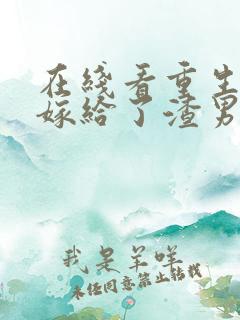 在线看重生
嫁给了渣男
我是羊咩
未经同意禁止转载